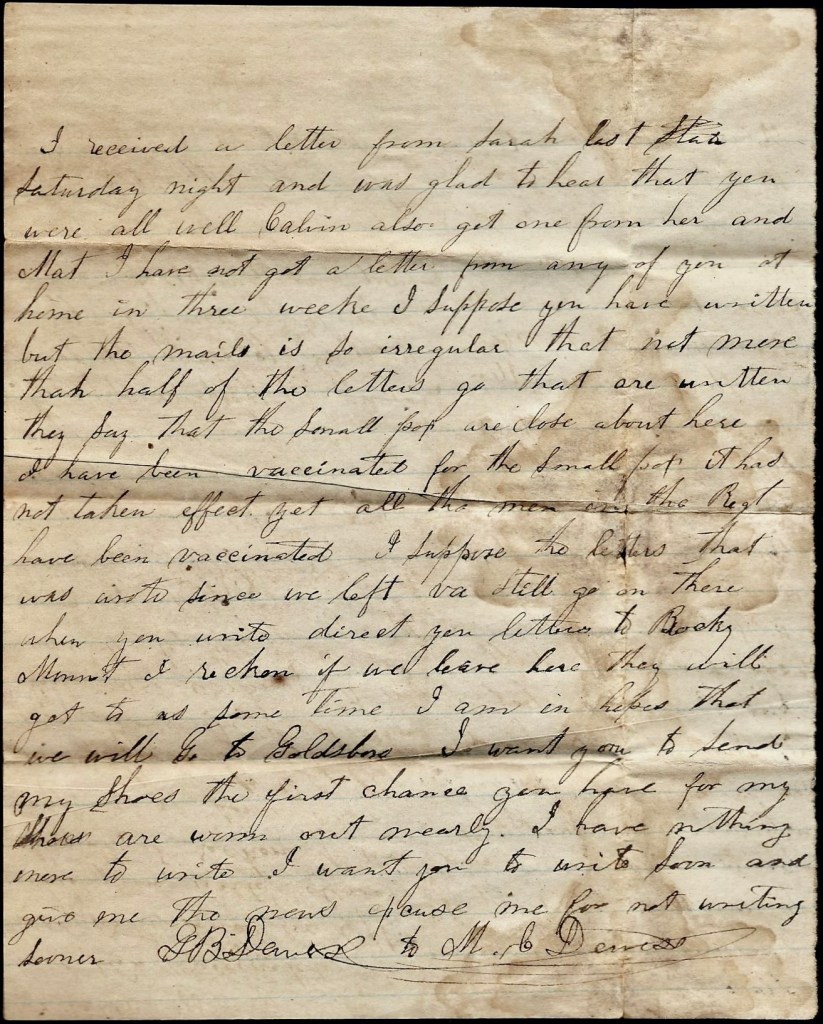 I received a letter from Sarah last
Saturday night and was glad to hear that you
were all well Calvin also got one from her and
Mat I have not got a letter from any of you at
home in three weeks I suppose you have written
but the mails is so irregular that not more
than half of the letters go that are written
they say that the small pox are close about here
I have been vaccinated for the small pox it has
not taken effect yet all the men in the Regt
have been vaccinated I suppose the letters that
was wrote since we left va still go on there
when you write direct you letters to Rocky
Mount I reckon if we leave here they will
get to us some time I am in hopes that
we will Go to Goldsboro I want you to send
my shoes the first chance you have for my
shoes are worn out nearly. I have nothing
more to write I want you to write soon and
give me the news excuse me for not writing
sooner G B Davis to M. C Davis